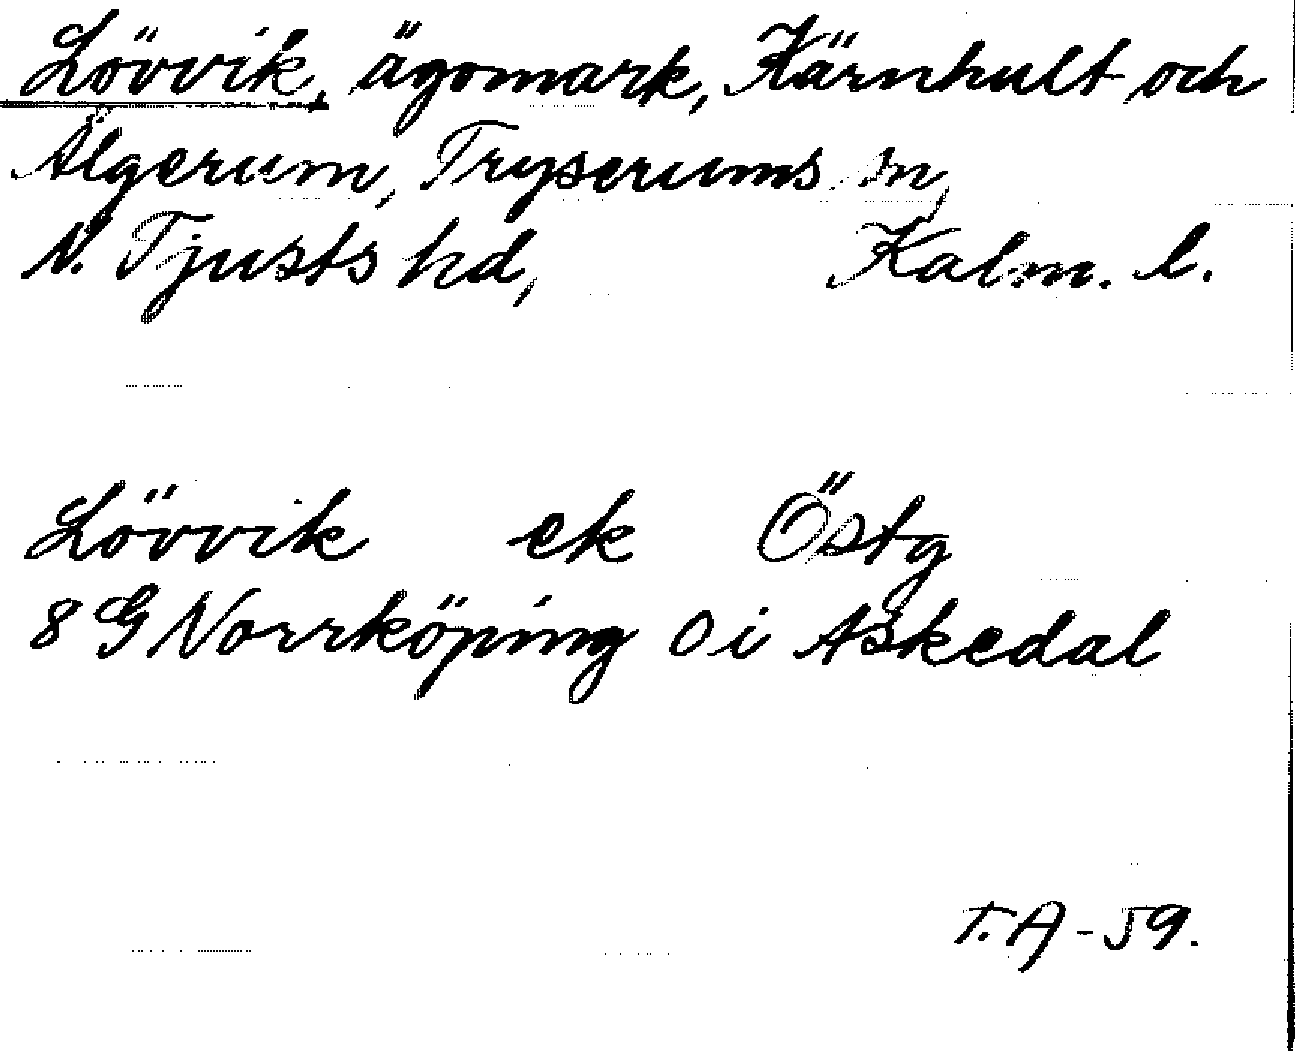 Lövvik, ägomark, Kärnhult och
Älgerum, Tryserums sn,
N. Tjusts hd, Kalm. l.
Lövvik ek Östg
8 G Norrköping O i Askedal
T.A-59.